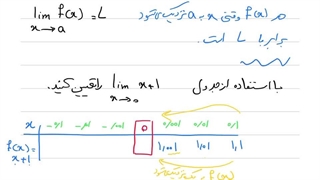 lim f(x) = L
x→a
حد f(x) وقتی x به a نزدیک می‌شود
برابر با L است.
با استفاده از جدول lim x+1 را تعیین کنید.
x→0
x 0 0/001 0/01 0/1
f(x)= x+1 1,001 1,01 1,1